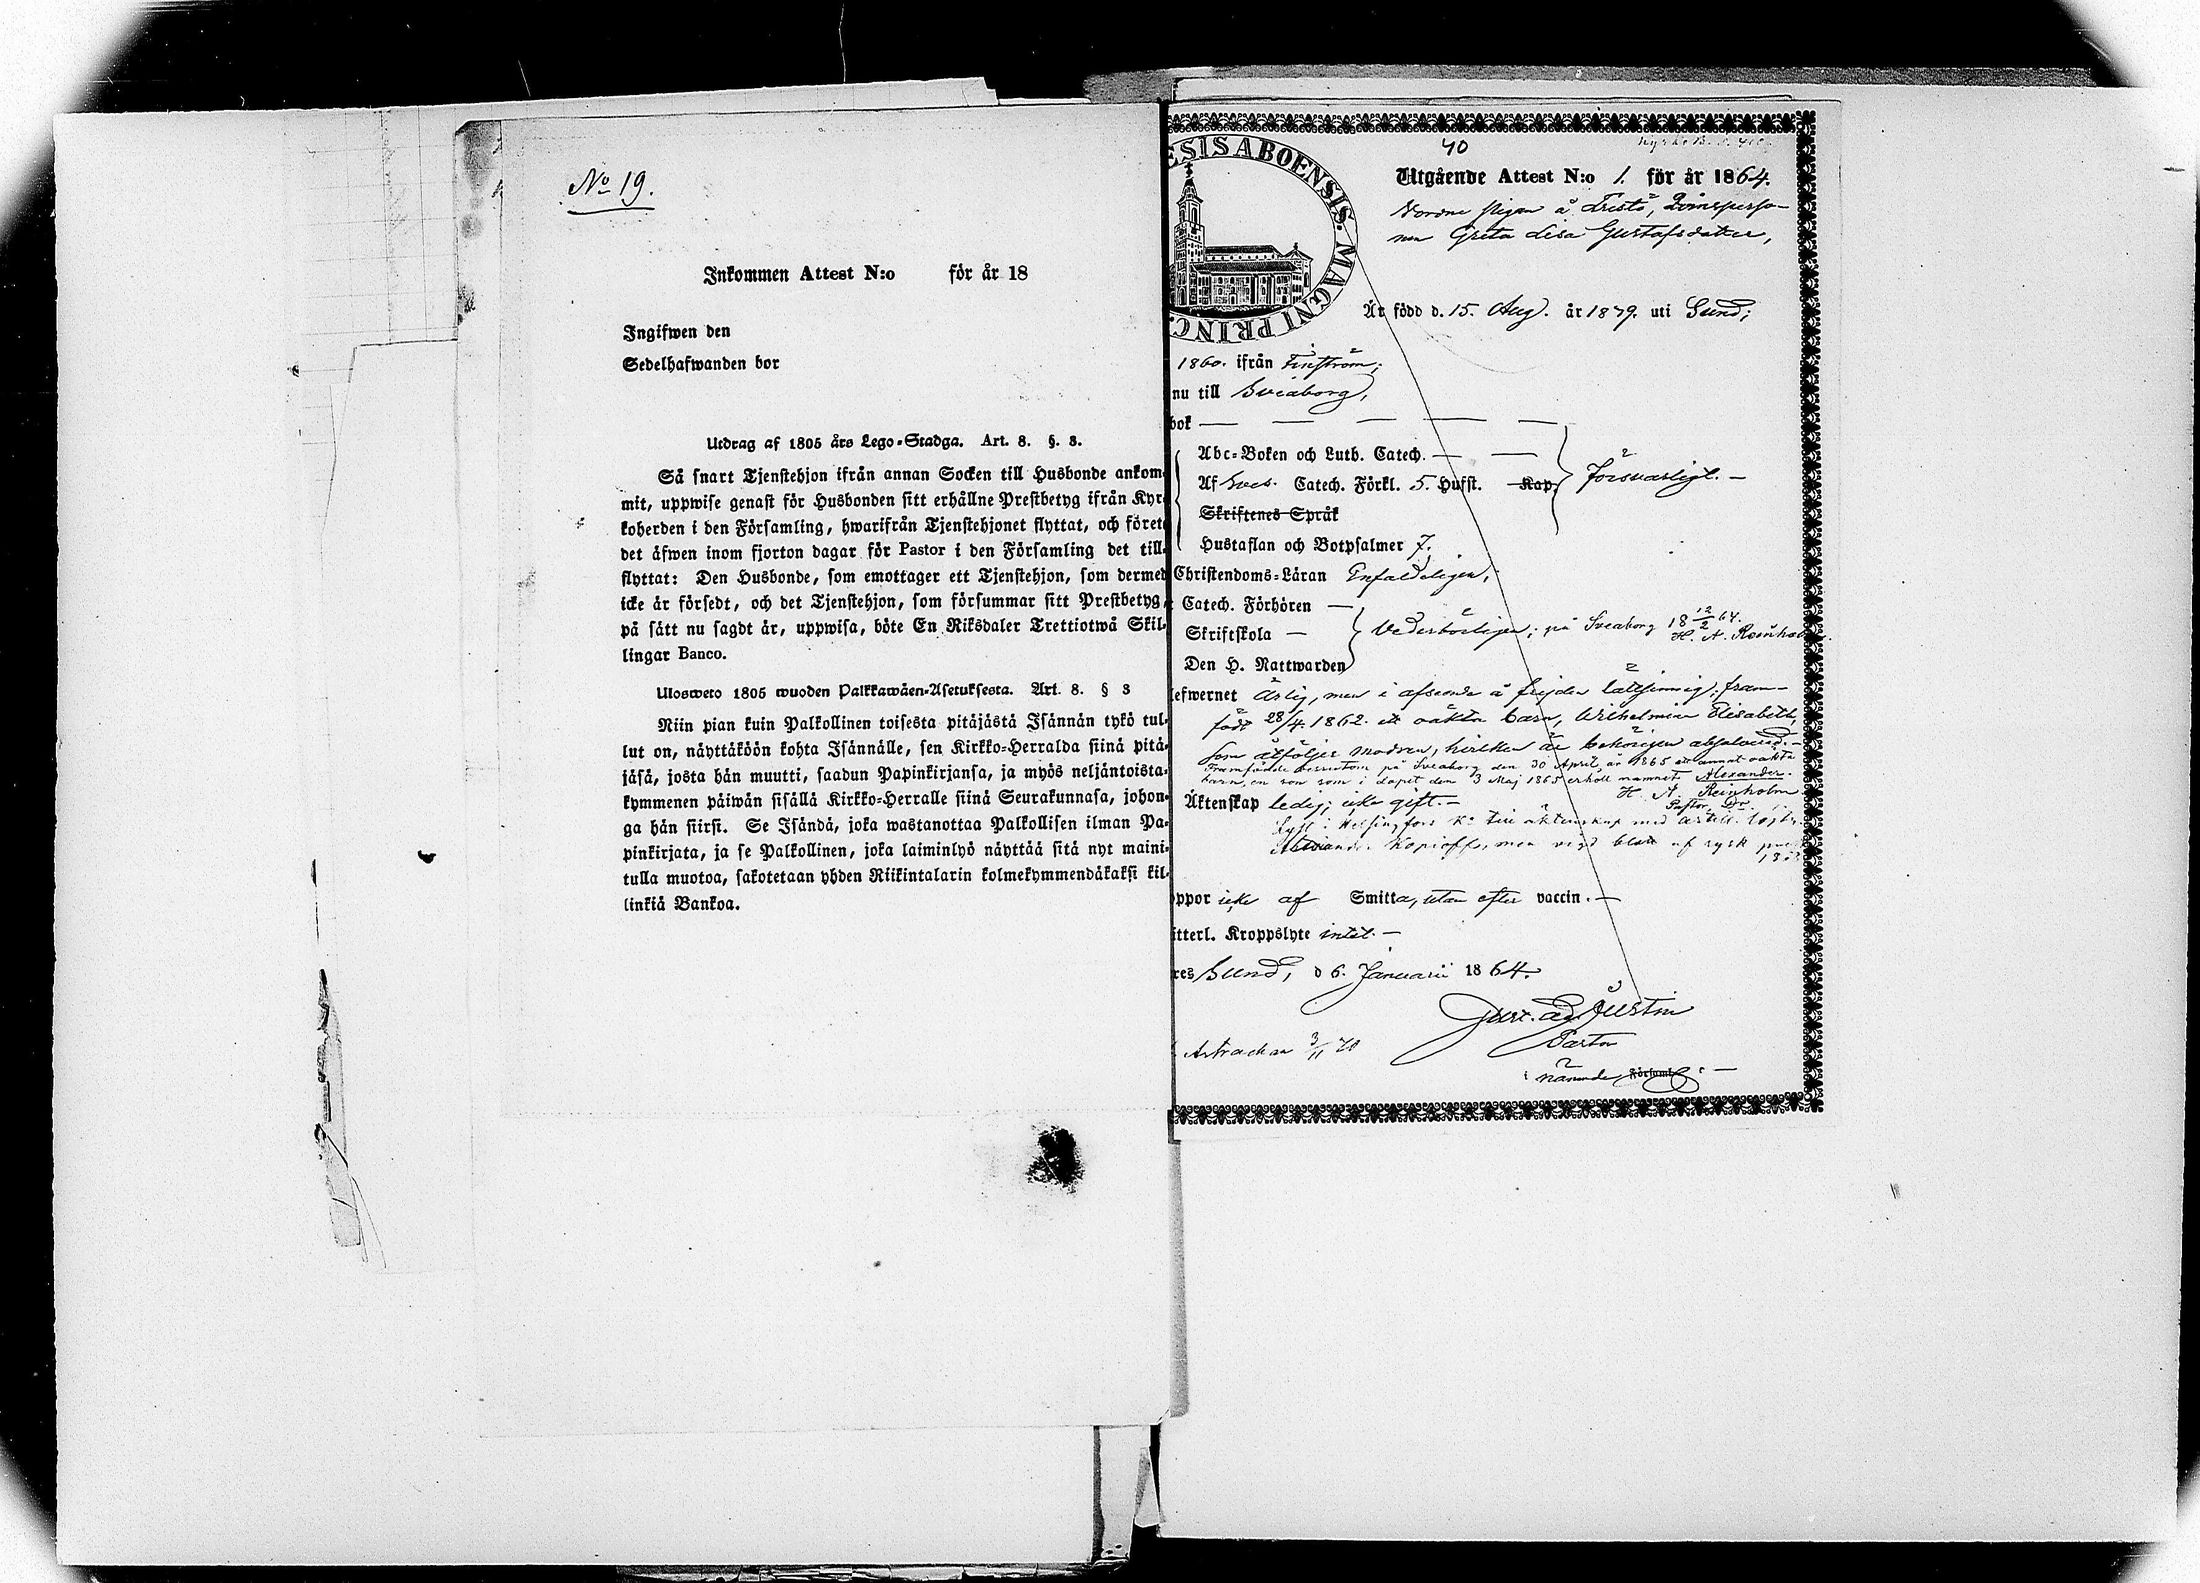 No 19.
Inkommen Attest N:o för år 18
Ingifwen den
Sedelhafwanden bor
Utdrag af 1805 års Lego-Stadga. Art. 8. §. 3.
Så snart Tjenstehjon ifrån annan Socken till Husbonde ankom-
mit, uppwise genast för Husbonden sitt erhållne Prestbetyg ifrån Kyr-
koherden i den Församling, hwarifrån Tjenstehjonet flyttat, och förete
det äfwen inom fjorton dagar för Pastor i den Församling det till-
flyttat: Den Husbonde, som emottager ett Tjenstehjon, som dermed
icke är försedt, och det Tjenstehjon, som försummar sitt Prestbetyg,
på sätt nu sagdt är, uppwisa, böte En Riksdaler Trettiotwå Skil-
lingar Banco.
Ulosweto 1805 wuoden Palkkawäen-Asetuksesta. Art. 8. § 3
Niin pian kuin Palkollinen toisesta pitäjästä Isännän tykö tul-
lut on, näyttäköön kohta Isännälle, sen Kirkko-Herralda siinä pitä-
jäsä, josta hän muutti, saadun Papinkirjansa, ja myös neljäntoista-
kymmenen päiwän sisällä Kirkko-Herralle siinä Seurakunnasa, johon-
ga hän siirsi. Se Isändä, joka wastanottaa Palkollisen ilman Pa-
pinkirjata, ja se Palkollinen, joka laiminlyö näyttää sitä nyt maini-
tulla muotoa, sakotetaan yhden Riikintalarin kolmekymmendäkaksi kil-
linkiä Bankoa.
ESIS ABOENSIS. MAGNI PRINC.
40
Utgående Attest N:o 1. för år 1864.
Greta Lisa Gustafsdotter,
Är född d. 15. Aug. år 1839. uti Sund;
1860. ifrån Finström;
nu till Sveaborg,
bok
Abc-Boken och Luth. Catech.
Af Sveb. Catech. Förkl. 5. Hufst. Kap. Försvarligt.
Skriftenes Språk
Hustaflan och Botpsalmer 7.
Christendoms-Läran Enfaldeligen;
Catech. Förhören
Skriftskola Vederbörligen; på Sveaborg 18 12/2 64. H. A. Reinholm.
Den H. Nattwarden
efwernet Ärlig, men i afseende å frejden lättsinnig; fram-
född 28/4. 1862. ett oäkta barn, Wilhelmina Elisabeth,
som åtföljer modren, hvilken är behörigen absolverad.
Framfödde dessutom på Sveaborg den 30 April år 1865 ett annat oäkta
barn, en son som i dopet den 3 Maj 1865 erhöll namnet Alexander.
H. A. Reinholm
Pastor, Dr.
Äktenskap ledig; icke gift.
Lyst i Helsingfors till äktenskap med
Alexander Kopioff, men vigd af rysk
oppor icke af Smitta, utan efter vaccin.
itterl. Kroppslyte intet.
res Sund, d 6. Januarii 1864.
Gust. Ad. Justin
Pastor
i nämnde Församl.
Astrachan 3/11 70